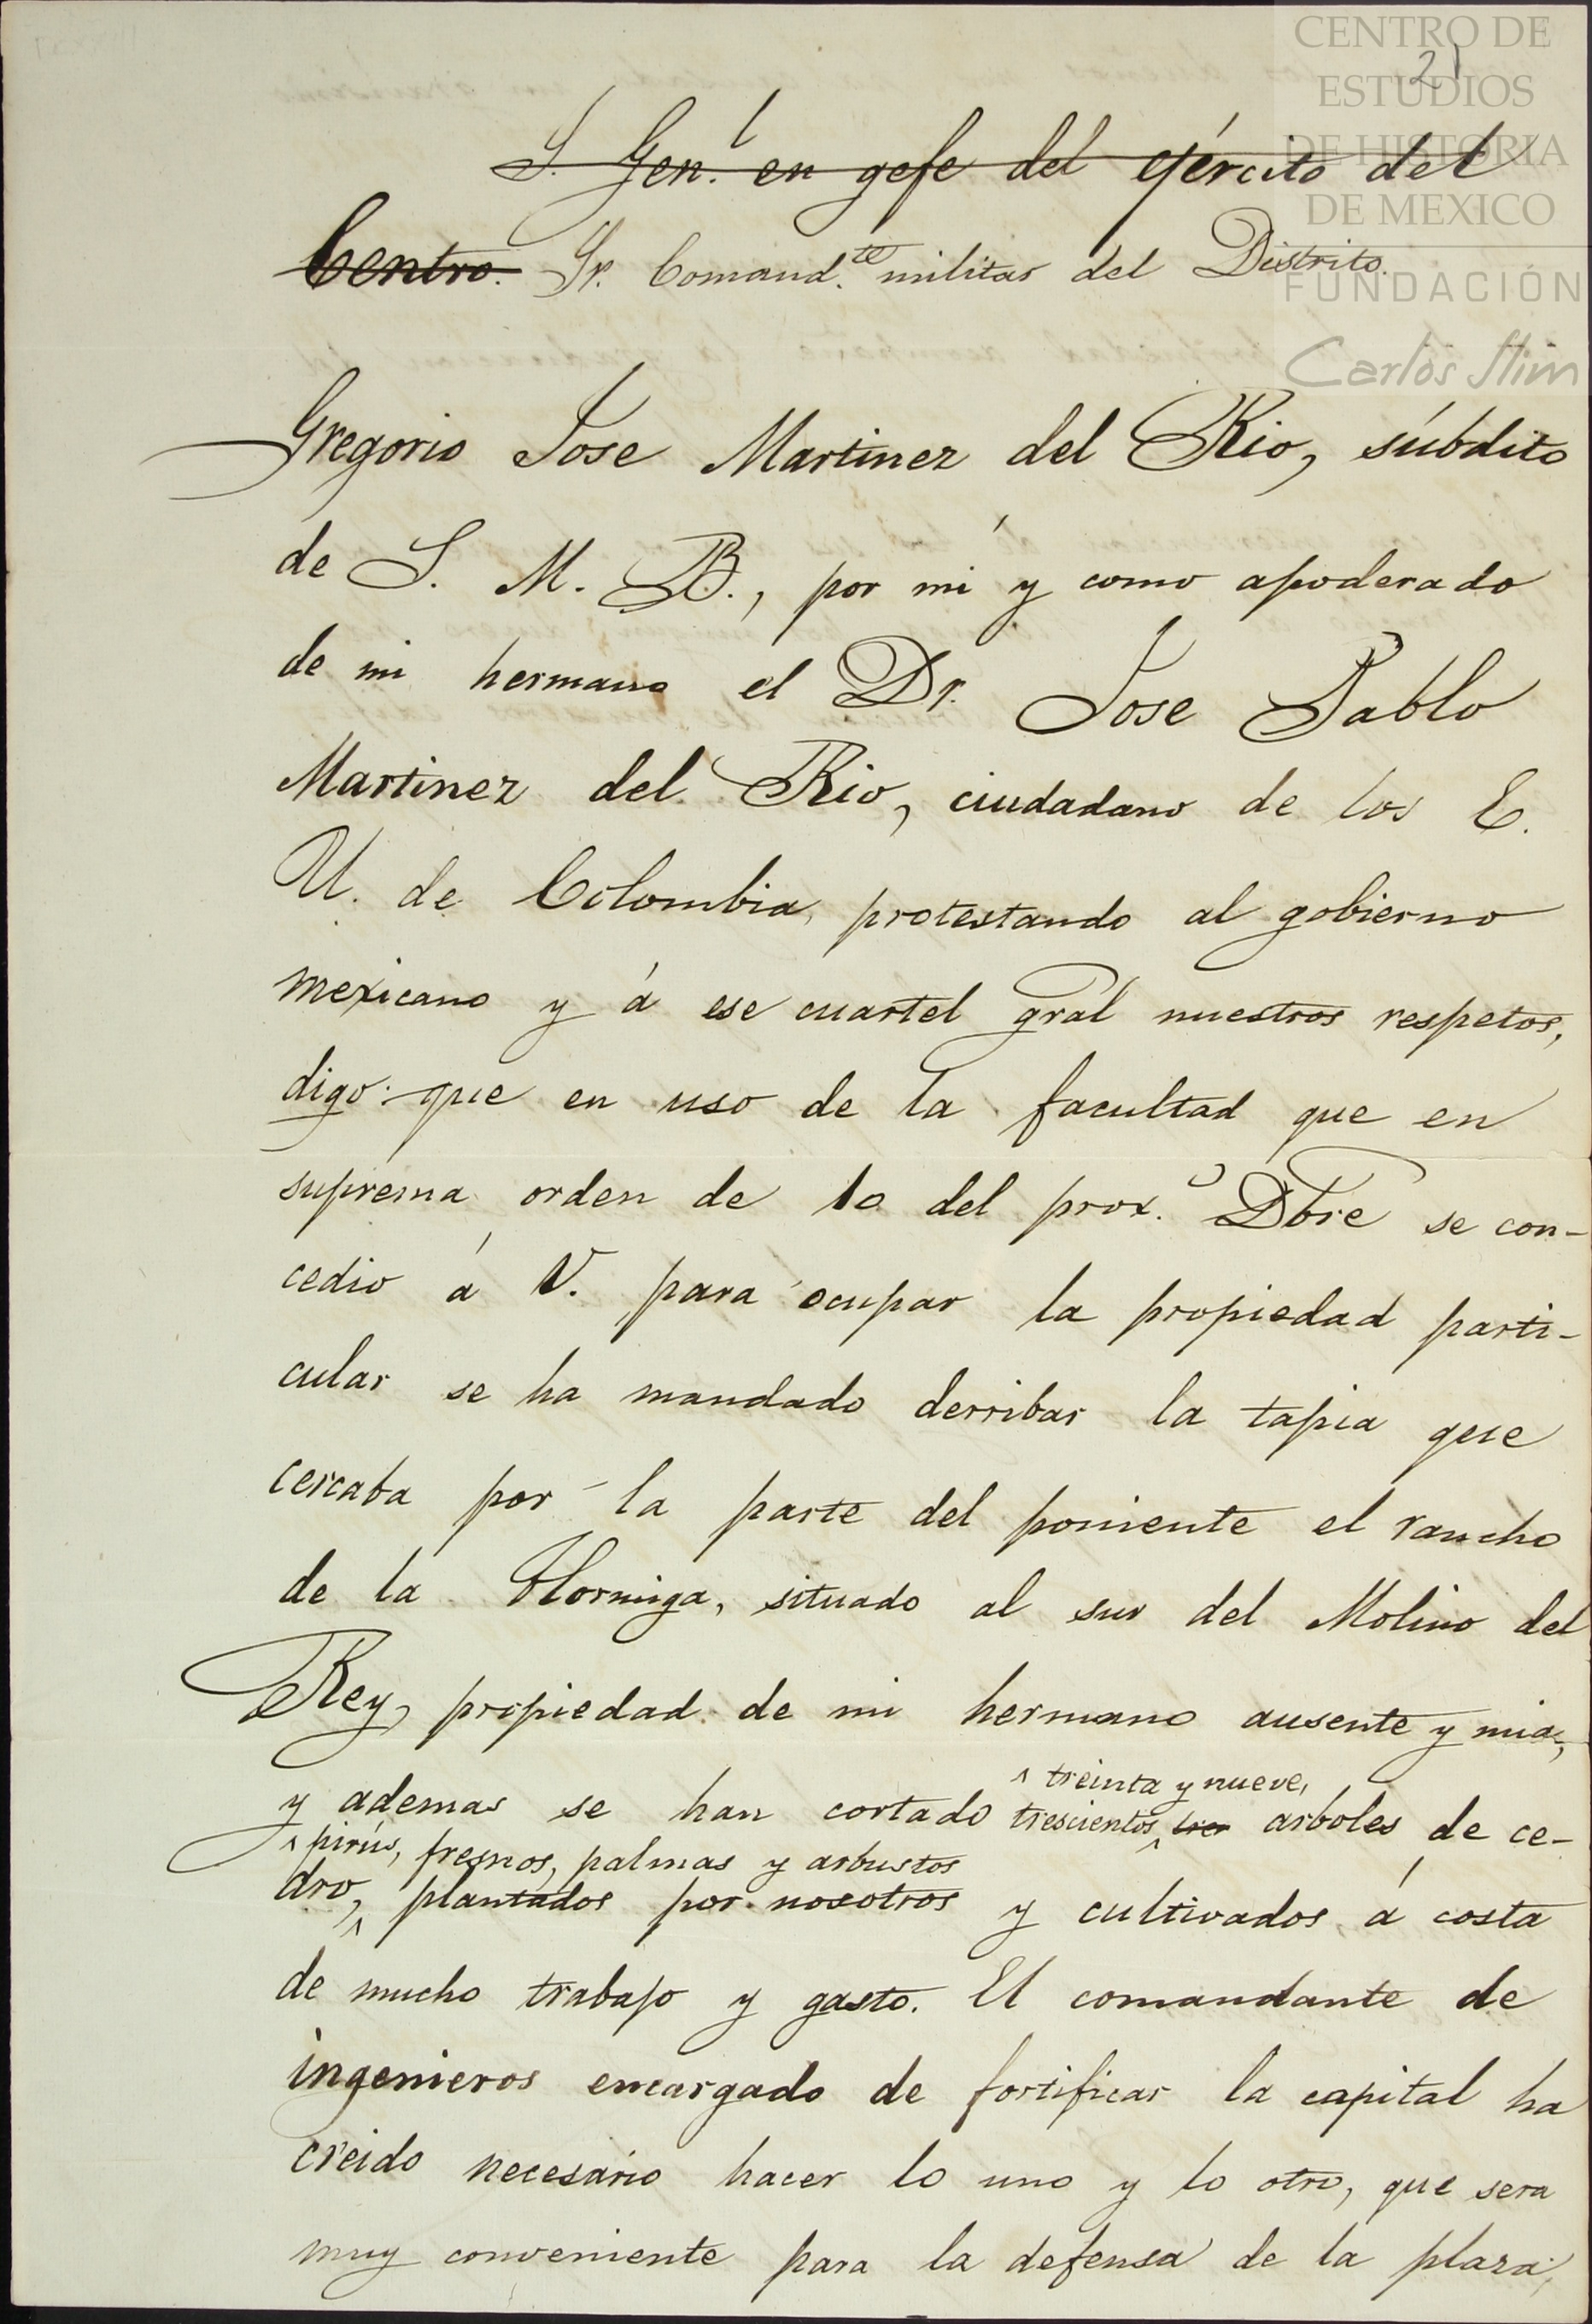 CENTRO DE
ESTUDIOS
DE HISTORIA
DE MEXICO
FUNDACIÓN
Carlos Slim
21
S. Gen.l en gefe del ejército del
Centro. Sr. Comand.te militar del Distrito.
Gregorio Jose Martinez del Rio, súbdito
de S. M. B., por mi y como apoderado
de mi hermano el Dr. Jose Pablo
Martinez del Rio, ciudadano de los E.
U. de Colombia, protestando al gobierno
mexicano y á ese cuartel gral nuestros respetos,
digo: que en uso de la facultad que en
suprema orden de 10 del prox.o Dbre se con-
cedió á V. para ocupar la propiedad parti-
cular se ha mandado derribar la tapia que
cercaba por la parte del poniente el rancho
de la Hormiga, situado al sur del Molino del
Rey, propiedad de mi hermano ausente y mia,
^ treinta y nueve,
y ademas se han cortado trescientos ^ tres arboles de ce-
^ pirús, fresnos, palmas y arbustos
dro, ^ plantados por nosotros y cultivados á costa
de mucho trabajo y gasto. El comandante de
ingenieros encargado de fortificar la capital ha
creido necesario hacer lo uno y lo otro, que sera
muy conveniente para la defensa de la plaza;